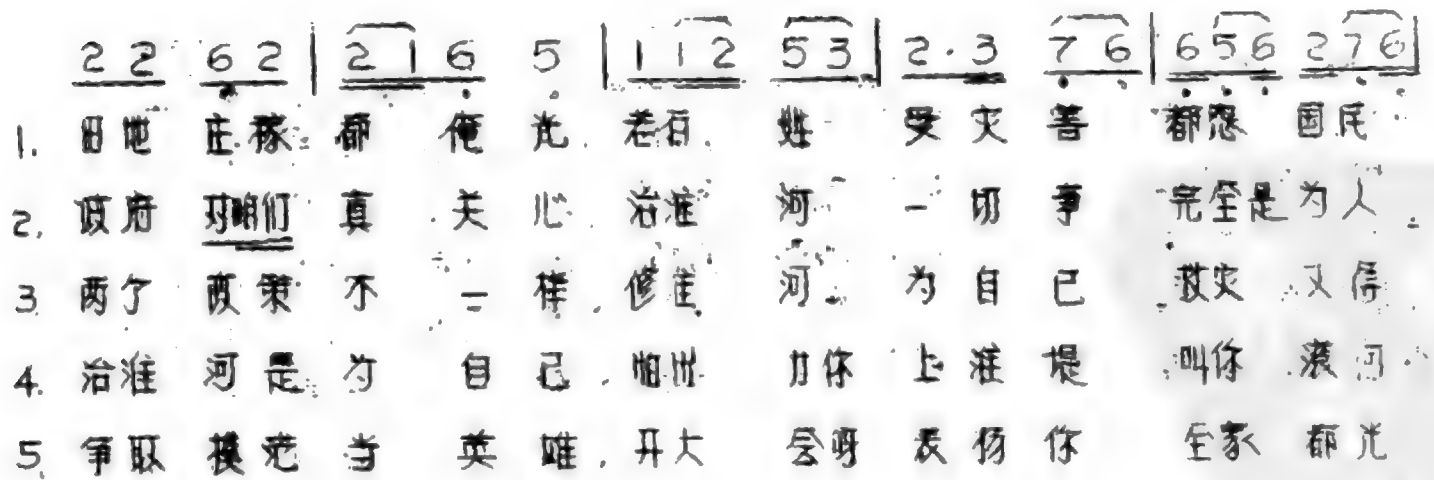 2 2 6 2 | 2 1 6 5 | 1 1 2 5 3 | 2 · 3 7 6 | 6 5 6 2 7 6 |
1. 田地 庄稼 都 俺 光 老百 姓 受 灾 害 都怨 国民
2. 政府 对咱们 真 关 心 治淮 河 一 切 事 完全是 为人
3 两个 政策 不 一 样. 修淮 河 为 自 己 救灾 又得
4. 治淮 河是 为 自 己. 你 上 淮 堤 叫你 河
5. 争取 模范 当 英 雄. 开大 会呀 表 扬 你 全家 都光